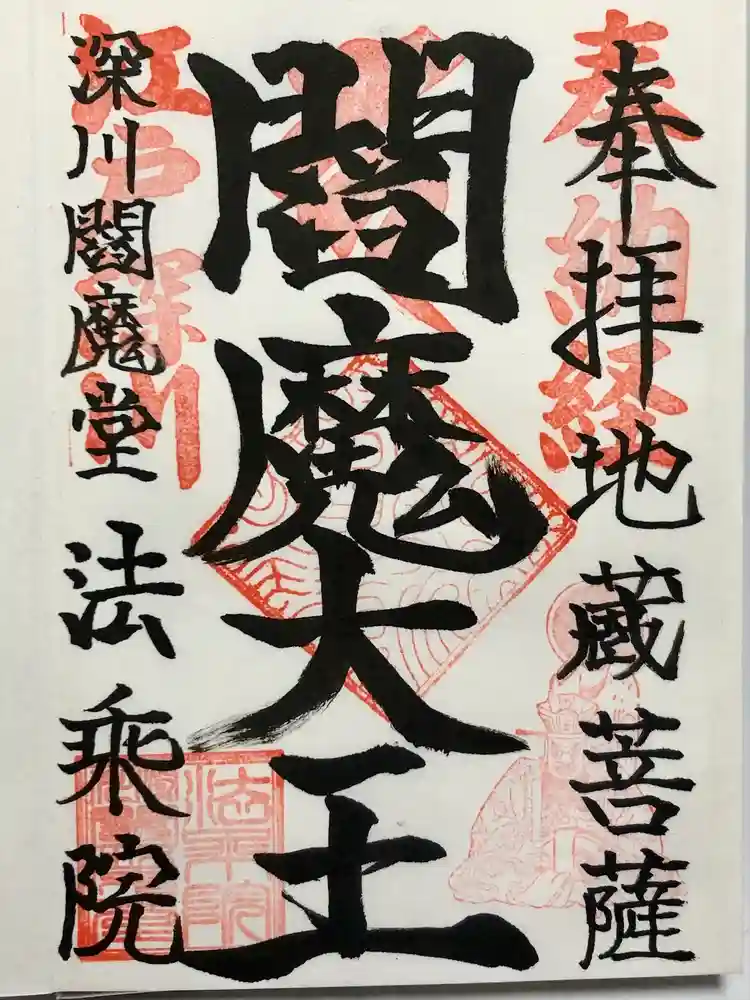 奉拝 地蔵菩薩
奉納経
閻魔大王
深川閻魔堂 法乗院
江戸深川
法乗院